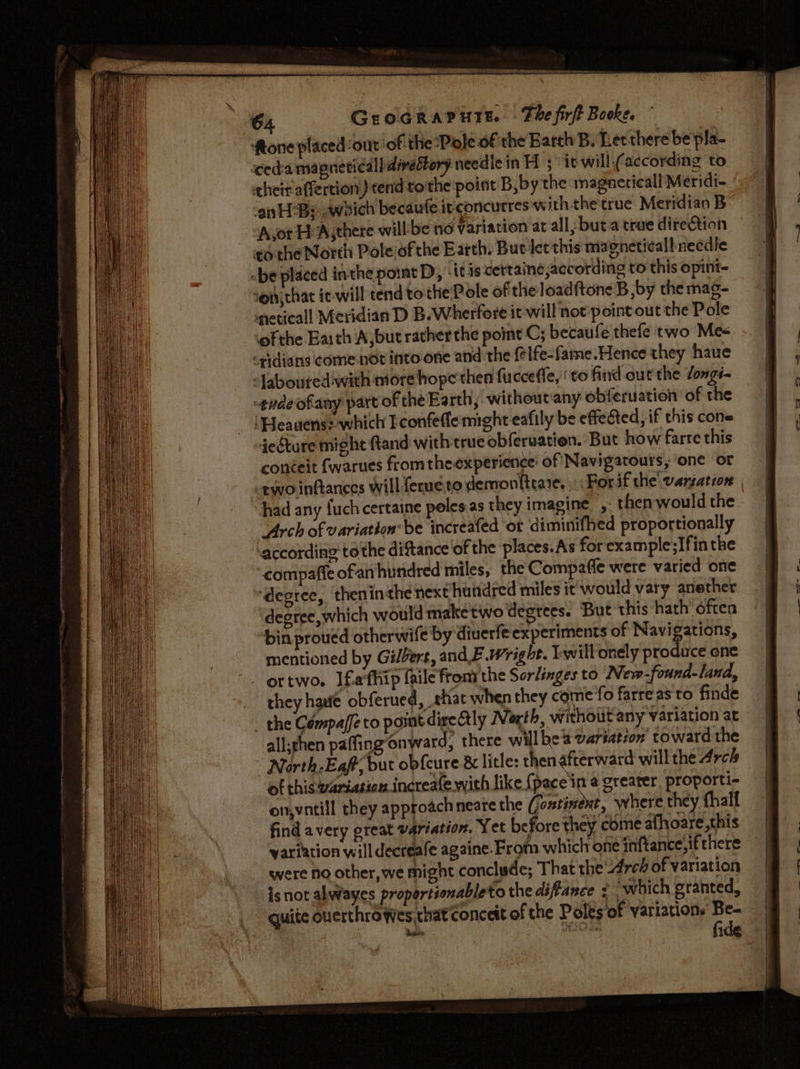 64 GEOGRAPHIE. The first Booke.
stone placed out of the Pole of the Earth B. Let there be pla-
ced a magneticall directory needle in H ; it will (according to
their assertion) tend to the point B, by the magneticall Meridi-
an H B; which because it concurres with the true Meridian B
A, or H A, there will be no variation at all, but a true direction
to the North Pole of the Earth. But let this magneticall needle
be placed in the point D, it is certaine, according to this opini-
on, that it will tend to the Pole of the loadstone B, by the mag-
neticall Meridian D B. Wherfore it will not point out the Pole
of the Earth A, but rather the point C; because these two Me-
ridians come not into one and the selfe-same. Hence they haue
laboured with more hope then successe, to find out the longi-
tude of any part of the Earth, without any obseruation of the
Heauens: which I confesse might easily be effected, if this con-
iecture might stand with true obseruation. But how farre this
conceit swarues from the experience of Nauigatours, one or
two instances will serue to demonstrate. For if the variation
had any such certaine poles as they imagine, then would the
Arch of variation be increased or diminished proportionally
according to the distance of the places. As for example; If in the
compasse of an hundred miles, the Compasse were varied one
degree, then in the next hundred miles it would vary another
degree, which would make two degrees. But this hath often
bin proued otherwise by diuerse experiments of Navigations,
mentioned by Gilbert, and E. Wright. I will onely produce one
or two. If a ship saile from the Sorlinges to New-found-land,
they haue obserued, that when they come so farre as to finde
the Compasse to point directly North, without any variation at
all; then passing onward, there will be a variation toward the
North-East, but obscure & litle: then afterward will the Arch
of this variation increase with like space in a greater proporti-
on, vntill they approach neare the Continent, where they shall
find a very great variation. Yet before they come ashoare, this
variation will decrease againe. From which one instance, if there
were no other, we might conclude; That the Arch of variation
is not alwayes proportionable to the distance : which granted,
quite ouerthrowes that conceit of the Poles of variation. Be-
side